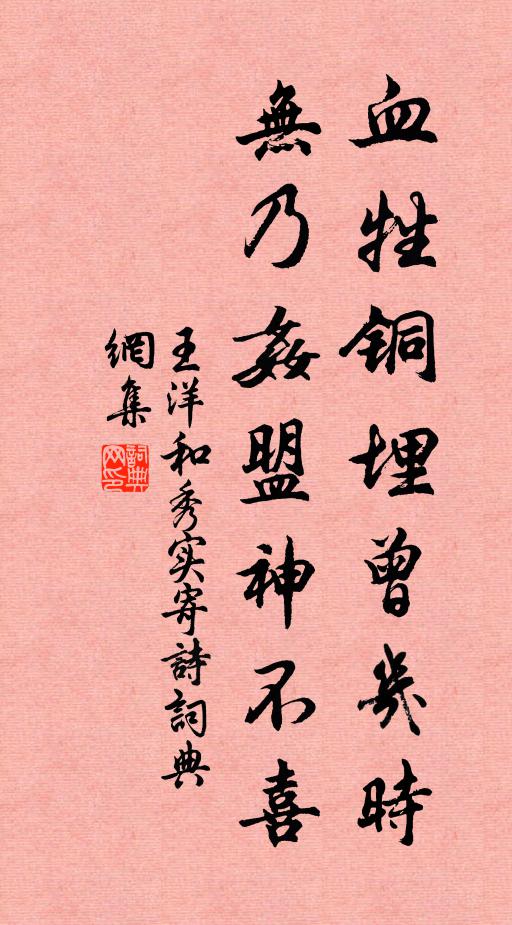 血牲铜埋曾幾時
無乃姦盟神不喜
王洋和秀实寄詩詞典
網集
詞典
网印